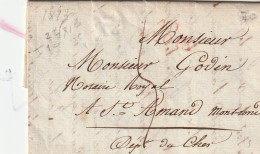 Monsieur
Monsieur Godin
Notaire Royal
A St. Amand Montrond
Dépt. du Cher